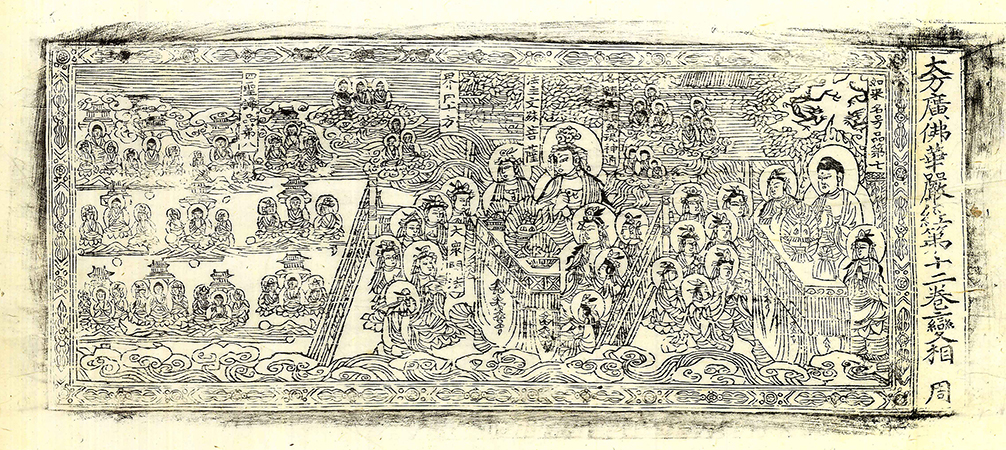 大方廣佛華嚴經第十二卷之變相 周
如來名号品第七
法主文殊菩薩
四聖諦品第八
大衆